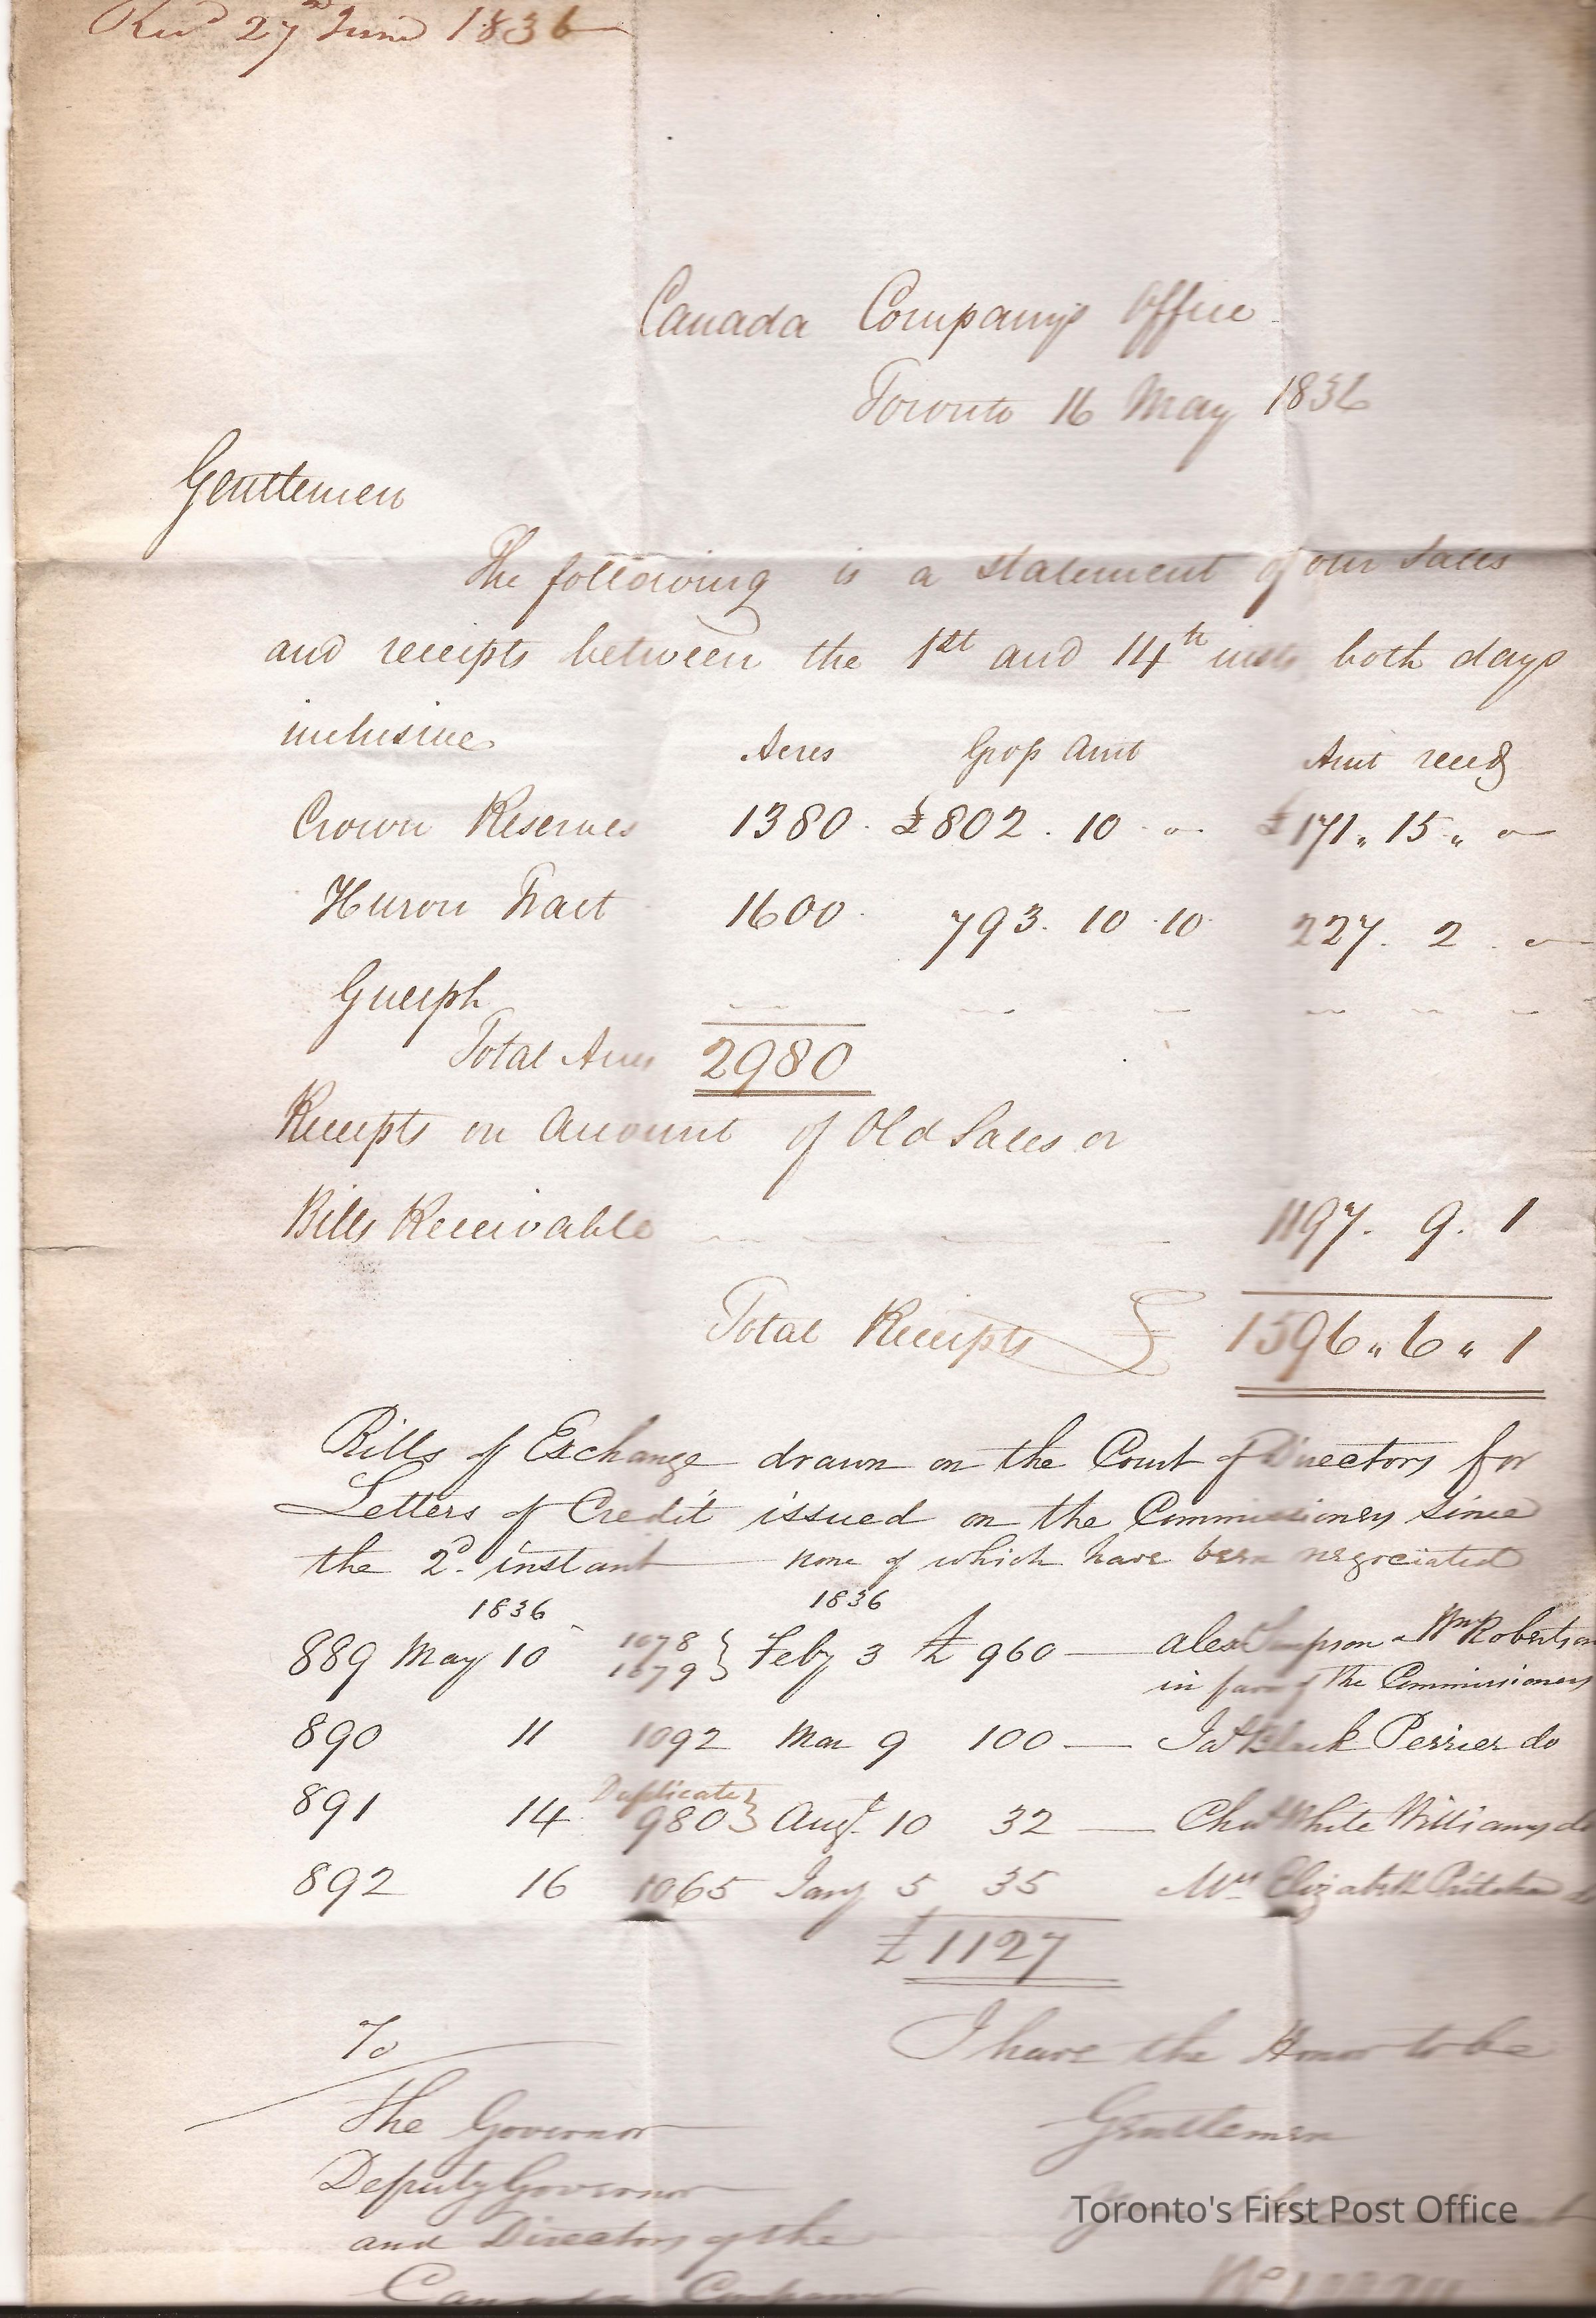 Recd 27th June 1836
Canada Company's Office
Toronto 16 May 1836
Gentlemen
The following is a statement of our sales
and receipts between the 1st and 14th inst. both days
inclusive
Acres Gross Amt Amt recd
Crown Reserves 1380. £802. 10. o £171„ 15„ o
Huron Tract 1600. 793. 10. 10 227. 2. o
Guelph — — — — — — —
Total Acres 2980
Receipts on Account of Old Sales or
Bills Receivable 1197. 9. 1
Total Receipts £ 1596„ 6„ 1
Bills of Exchange drawn on the Court of Directors for
Letters of Credit issued on the Commissioners since
the 2d. instant — none of which have been negociated
1836 1836
889 May 10 1078 1079 } Feby 3 £ 960 — Alex Simpson & Wm Robertson
in favr of the Commissioners
890 11 1092 Mar 9 100 — Jas Black Perrier do
891 14 Duplicate 980 } Augt. 10 32 — Chas White Williams do
892 16 1065 Jany 5 35 Mrs Elizabeth
£ 1127
To I have the Honor to be
The Governor Gentlemen
Deputy Governor
and Directors of the
Canada Company
Toronto's First Post Office